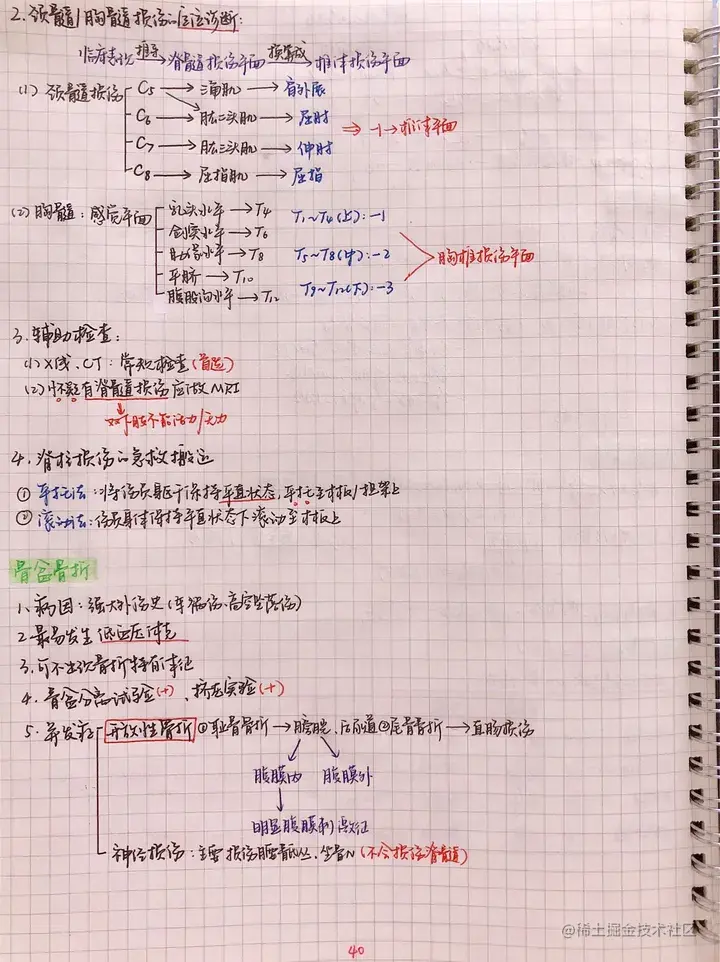 2.颈髓/胸髓损伤的定位诊断:
临床表现 推导→ 脊髓损伤平面 换算成→ 椎体损伤平面
(1) 颈髓损伤 C5 → 三角肌 → 肩外展
C6 → 肱二头肌 → 屈肘 ⇒ -1→椎体平面
C7 → 肱三头肌 → 伸肘
C8 → 屈指肌 → 屈指
(2) 胸髓: 感觉平面 乳头水平 → T4 T1~T4(上):-1
剑突水平 → T6
肋缘水平 → T8 T5~T8(中):-2 胸椎损伤平面
平脐 → T10
腹股沟水平 → T12 T9~T12(下):-3
3.辅助检查:
(1) X线、CT: 常规检查(首选)
(2) 怀疑有脊髓损伤应做MRI
双下肢不能活动/无力
4.脊柱损伤的急救搬运
① 平托法:将伤员躯干保持平直状态,平托至木板/担架上
② 滚动法:伤员身体保持平直状态下滚动至木板上
骨盆骨折
1.病因:强大外伤史(车祸伤、高空坠落伤)
2.最易发生低血压休克
3.可不出现骨折特有体征
4.骨盆分离试验(+)、挤压实验(+)
5.并发症 开放性骨折 ①耻骨骨折 → 膀胱、后尿道 ②尾骨骨折 → 直肠损伤
腹膜内 腹膜外
明显腹膜刺激征
神经损伤:主要损伤腰骶丛、坐骨N(不会损伤脊髓)
40
@稀土掘金技术社区